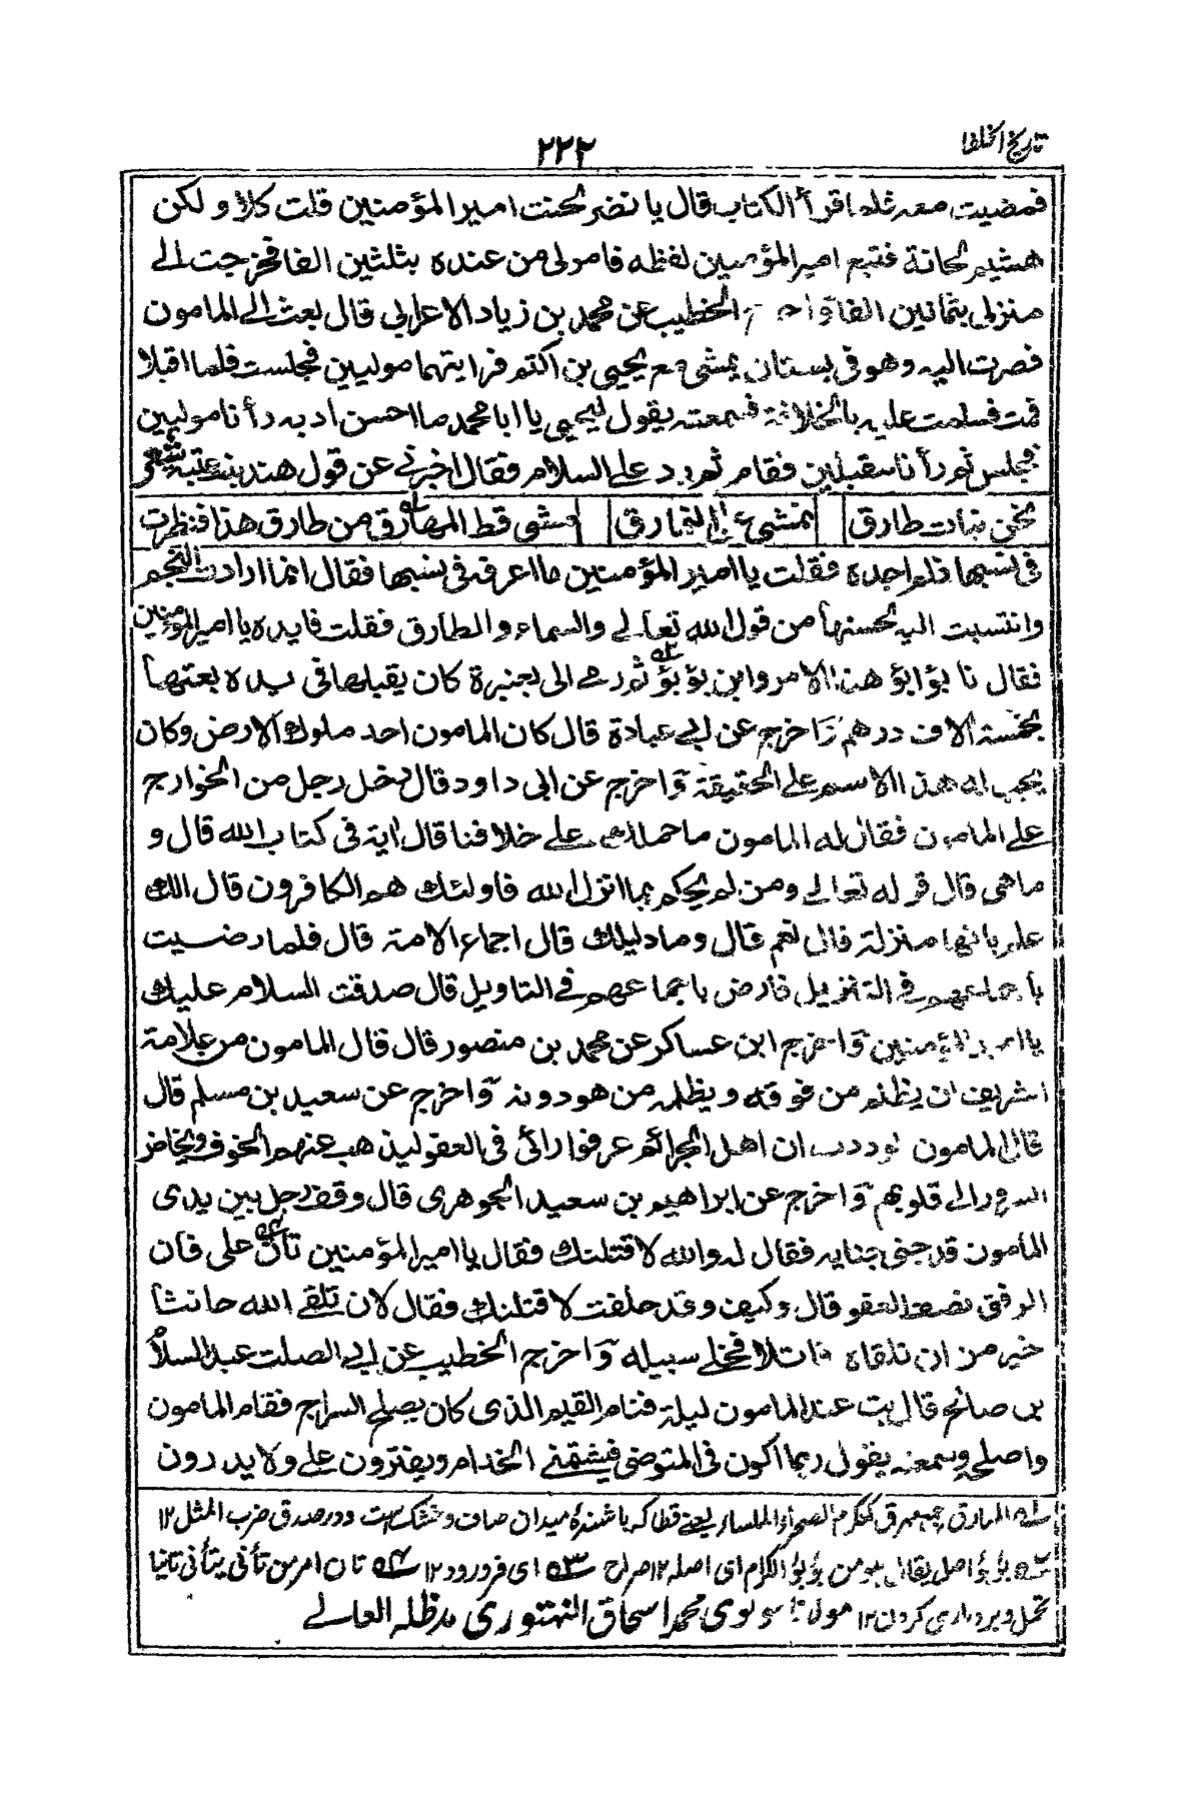 تاريخ الخلفا
٢٢٢
فمضيت معه ثلما قرأ الكتاب قال يا نضر لحنت امير المؤمنين قلت كلا و لكن
هشيم لحانة فتبع امير المؤمنين لفظه فامر لى من عنده بثلثين الفا فخرجت الى
منزلى بثمانين الفا وا الخطيب عن محمد بن زياد الاعرابي قال بعث الى المامون
فصرت اليه وهو فى بستان يمشى مع يحيى بن اكثم فرايتهما موليين فجلست فلما اقبلا
قمت فسلمت عليه بالخلافة فسمعته يقول ليحيى يا ابا محمد ما احسن ادبه رأنا موليين
فجلس ثم رأنا مقبلين فقام ثم رد على السلام فقال اخبرنى عن قول هند بنت عتبة شعر
نحن بنات طارق نمشى على النمارق مشى قطا المهارق من طارق هذا فنظرت
فى نسبها فلم اجده فقلت يا امير المؤمنين ما اعرفه فى نسبها فقال انما ارادت النجم
وانتسبت اليه لحسنها من قول الله تعالى والسماء والطارق فقلت فايده يا امير المؤمنين
فقال انا بؤبؤ هذا الامر وابن بؤبؤ ثم رمى الى بعنبرة كان يقبلها فى يده بعتها
بخمسة الاف درهم واخرج عن ابى عبادة قال كان المامون احد ملوك الارض وكان
يجب له هذا الاسم على الحقيقة واخرج عن ابى داود قال دخل رجل من الخوارج
على المامون فقال له المامون ما حملك على خلافنا قال اية فى كتاب الله قال و
ما هى قال قوله تعالى ومن لم يحكم بما انزل الله فاولئك هم الكافرون قال الك
علم بانها منزلة قال نعم قال وما دليلك قال اجماع الامة قال فلما رضيت
باجماعهم فى التنزيل فارض باجماعهم فى التاويل قال صدقت السلام عليك
يا امير المؤمنين واخرج ابن عساكر عن محمد بن منصور قال قال المامون من علامة
الشريف ان يظلم من فوقه ويظلمه من هو دونه واخرج عن سعيد بن مسلم قال
قال المامون لوددت ان اهل الجرائم عرفوا رائى فى العفو ليذهب عنهم الخوف ويخلص
السرور الى قلوبهم واخرج عن ابراهيم بن سعيد الجوهرى قال وقف رجل بين يدى
المامون قد جنى جنايه فقال له والله لاقتلنك فقال يا امير المؤمنين تأن على فان
الرفق نصف العفو قال وكيف وقد حلفت لاقتلنك فقال لان تلقى الله حانثا
خير من ان تلقاه قاتلا فخلى سبيله واخرج الخطيب عن ابى الصلت عبد السلام
بن صالح قال بت عند المامون ليلة فنام القيم الذى كان يصلح السراج فقام المامون
واصلحه وسمعته يقول ربما اكون فى المتوضى فيشتمنى الخدام ويفترون على ولا يدرون
له المهارق جمع مهرق كمكرم الصحراء الملساء يعنى قطا كه باشنده ميدان صاف وخشك است ودر صدق ضرب المثل ١٢
٢ه بؤبؤ اصل يقال هو من بؤبؤ الكرم اى اصله ١٢ صراح ٣ه اى فرورود ١٢ ٤ه تان امر من تأنى يتأنى تانيا
تحمل و بردبارى كردن ١٢ مولانا مولوى محمد اسحاق النهتورى مد ظله العالى